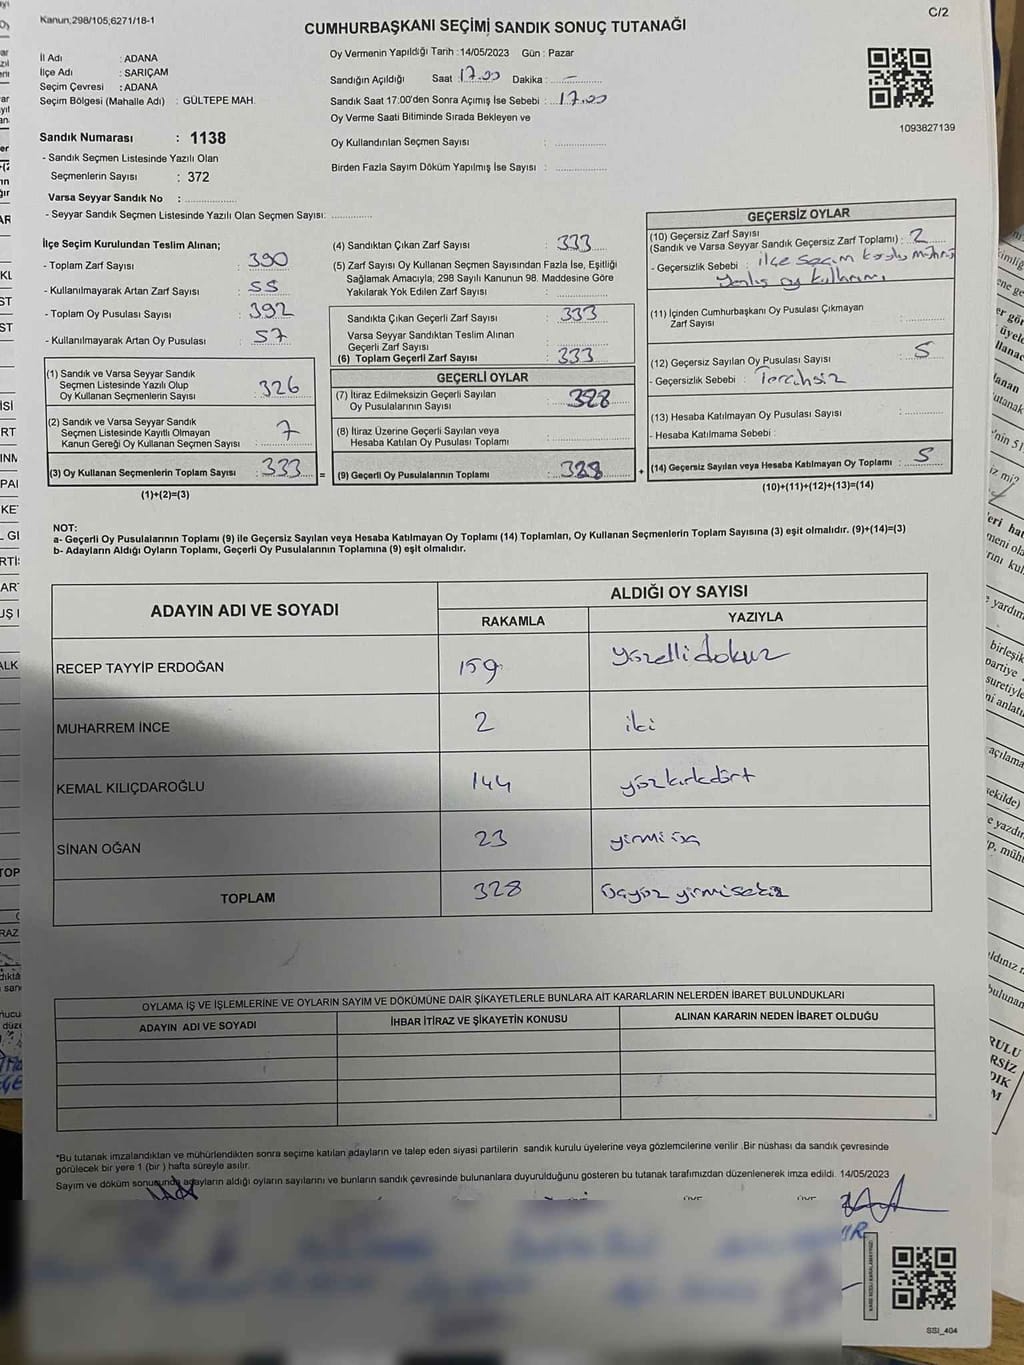 Kanun,298/105,6271/18-1
C/2
CUMHURBAŞKANI SEÇİMİ SANDIK SONUÇ TUTANAĞI
İl Adı : ADANA
İlçe Adı : SARIÇAM
Seçim Çevresi : ADANA
Seçim Bölgesi (Mahalle Adı) : GÜLTEPE MAH.
Oy Vermenin Yapıldığı Tarih :14/05/2023 Gün : Pazar
Sandığın Açıldığı Saat :17.00 Dakika : –
Sandık Saat 17:00'den Sonra Açımış İse Sebebi : 17.00
Oy Verme Saati Bitiminde Sırada Bekleyen ve
Oy Kullandırılan Seçmen Sayısı :
Birden Fazla Sayım Döküm Yapılmış İse Sayısı :
1093827139
Sandık Numarası : 1138
- Sandık Seçmen Listesinde Yazılı Olan
Seçmenlerin Sayısı : 372
Varsa Seyyar Sandık No :
- Seyyar Sandık Seçmen Listesinde Yazılı Olan Seçmen Sayısı:
İlçe Seçim Kurulundan Teslim Alınan;
- Toplam Zarf Sayısı : 390
- Kullanılmayarak Artan Zarf Sayısı : 55
- Toplam Oy Pusulası Sayısı : 392
- Kullanılmayarak Artan Oy Pusulası : 57
(1) Sandık ve Varsa Seyyar Sandık
Seçmen Listesinde Yazılı Olup
Oy Kullanan Seçmenlerin Sayısı : 326
(2) Sandık ve Varsa Seyyar Sandık
Seçmen Listesinde Kayıtlı Olmayan
Kanun Gereği Oy Kullanan Seçmen Sayısı : 7
(3) Oy Kullanan Seçmenlerin Toplam Sayısı : 333 =
(1)+(2)=(3)
(4) Sandıktan Çıkan Zarf Sayısı : 333
(5) Zarf Sayısı Oy Kullanan Seçmen Sayısından Fazla İse, Eşitliği
Sağlamak Amacıyla, 298 Sayılı Kanunun 98. Maddesine Göre
Yakılarak Yok Edilen Zarf Sayısı :
Sandıkta Çıkan Geçerli Zarf Sayısı : 333
Varsa Seyyar Sandıktan Teslim Alınan
Geçerli Zarf Sayısı :
(6) Toplam Geçerli Zarf Sayısı : 333
GEÇERLİ OYLAR
(7) İtiraz Edilmeksizin Geçerli Sayılan
Oy Pusulalarının Sayısı : 328
(8) İtiraz Üzerine Geçerli Sayılan veya
Hesaba Katılan Oy Pusulası Toplamı :
(9) Geçerli Oy Pusulalarının Toplamı : 328 +
GEÇERSİZ OYLAR
(10) Geçersiz Zarf Sayısı
(Sandık ve Varsa Seyyar Sandık Geçersiz Zarf Toplamı) : 2
- Geçersizlik Sebebi : ilçe seçim kurulu mührü
Yanlış oy kullanımı
(11) İçinden Cumhurbaşkanı Oy Pusulası Çıkmayan
Zarf Sayısı :
(12) Geçersiz Sayılan Oy Pusulası Sayısı : 5
- Geçersizlik Sebebi : Tercihsiz
(13) Hesaba Katılmayan Oy Pusulası Sayısı :
- Hesaba Katılmama Sebebi :
(14) Geçersiz Sayılan veya Hesaba Katılmayan Oy Toplamı : 5
(10)+(11)+(12)+(13)=(14)
NOT:
a- Geçerli Oy Pusulalarının Toplamı (9) ile Geçersiz Sayılan veya Hesaba Katılmayan Oy Toplamı (14) Toplamları, Oy Kullanan Seçmenlerin Toplam Sayısına (3) eşit olmalıdır. (9)+(14)=(3)
b- Adayların Aldığı Oyların Toplamı, Geçerli Oy Pusulalarının Toplamına (9) eşit olmalıdır.
ADAYIN ADI VE SOYADI
ALDIĞI OY SAYISI
RAKAMLA YAZIYLA
RECEP TAYYİP ERDOĞAN 159 yüzellidokuz
MUHARREM İNCE 2 iki
KEMAL KILIÇDAROĞLU 144 yüzkırkdört
SİNAN OĞAN 23 yirmi üç
TOPLAM 328 üçyüz yirmisekiz
OYLAMA İŞ VE İŞLEMLERİNE VE OYLARIN SAYIM VE DÖKÜMÜNE DAİR ŞİKAYETLERLE BUNLARA AİT KARARLARIN NELERDEN İBARET BULUNDUKLARI
ADAYIN ADI VE SOYADI İHBAR İTİRAZ VE ŞİKAYETİN KONUSU ALINAN KARARIN NEDEN İBARET OLDUĞU
*Bu tutanak imzalandıktan ve mühürlendikten sonra seçime katılan adayların ve talep eden siyasi partilerin sandık kurulu üyelerine veya gözlemcilerine verilir .Bir nüshası da sandık çevresinde
görülecek bir yere 1 (bir ) hafta süreyle asılır.
Sayım ve döküm sonucunda adayların aldığı oyların sayılarını ve bunların sandık çevresinde bulunanlara duyurulduğunu gösteren bu tutanak tarafımızdan düzenlenerek imza edildi. 14/05/2023
SSI_404